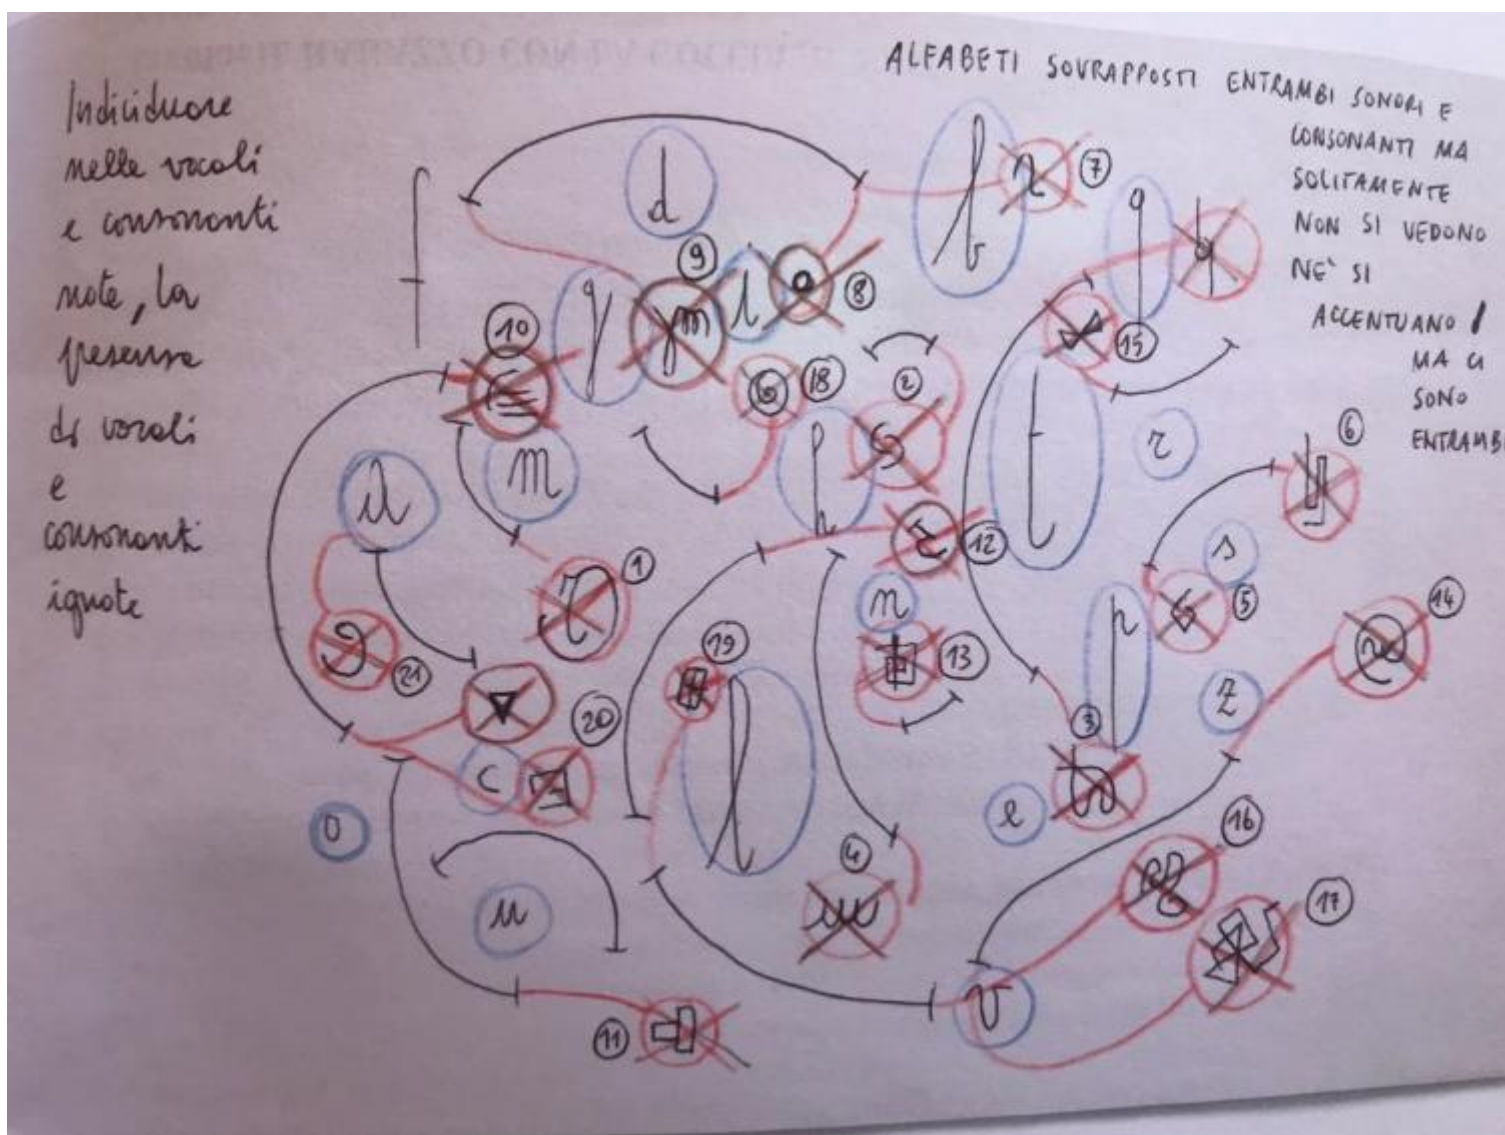 Individuare
nelle vocali
e consonanti
note, la
presenza
di vocali
e
consonanti
ignote
ALFABETI SOVRAPPOSTI ENTRAMBI SONORI E
CONSONANTI MA
SOLITAMENTE
NON SI VEDONO
NE' SI
ACCENTUANO
MA CI
SONO
ENTRAMBI
d
b
7
q
f
9
i
8
10
q
m
15
18
2
h
t
r
6
a
m
12
s
1
n
5
14
13
19
p
z
21
3
20
c
l
o
e
16
4
u
17
v
11